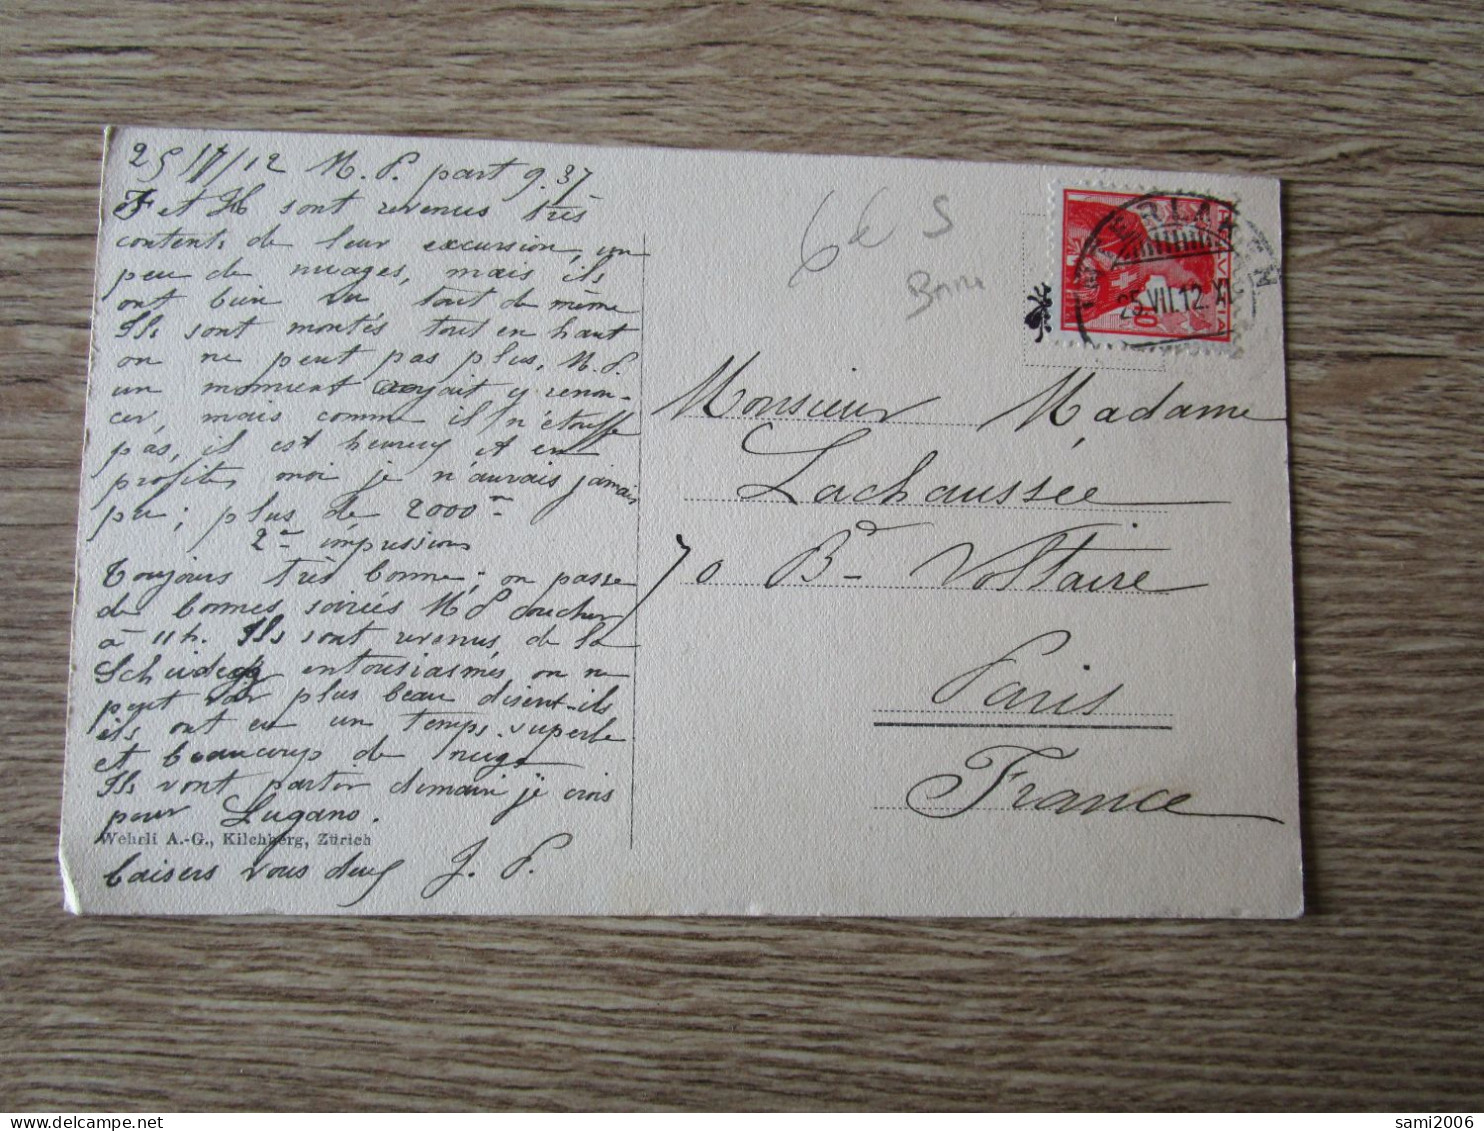 25/7/12 M. P. part 9.37
F et H sont revenus très
contents de leur excursion, un
peu de nuages, mais ils
ont bien vu tout de même
Ils sont montés tout en haut
on ne peut pas plus, M. P.
un moment croyait y renon-
cer, mais comme il n'étouffe
pas, il est heureux et en
profite, moi je n'aurais jamais
pu; plus de 2000 m
2e impression
Toujours très bonne; on passe
de bonnes soirées M P coucher
à 11 h. Ils sont revenus de la
Scheidegg entousiasmés on ne
peut voir plus beau disent-ils
ils ont eu un temps superbe
et beaucoup de neige
Ils vont partir demain je crois
pour Lugano.
Wehrli A.-G., Kilchberg, Zürich
baisers vous deux J. P.
6e S
INTERLAKEN
25.VII.12. XI
HELVETIA
10
Monsieur Madame
Lachaussée
70 Bd Voltaire
Paris
France
sami2006